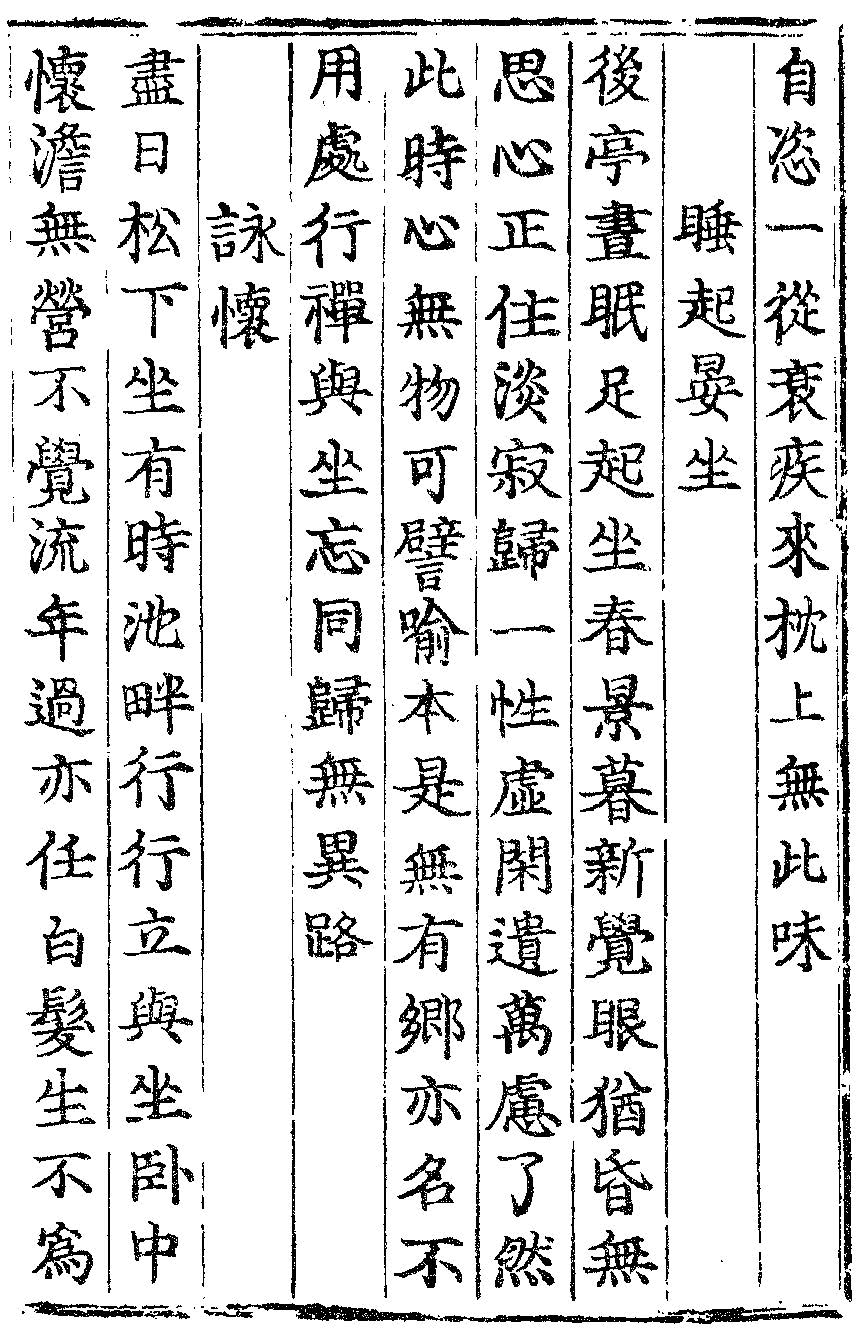 自恣一從衰疾來枕上無此味
睡起晏坐
後亭晝眠足起坐春景暮新覺眼猶昏無
思心正住淡寂歸一性虛閑遺萬慮了然
此時心無物可譬喻本是無有鄉亦名不
用處行禪與坐忘同歸無異路
詠懷
盡日松下坐有時池畔行行立與坐卧中
懷澹無營不覺流年過亦任白髮生不爲